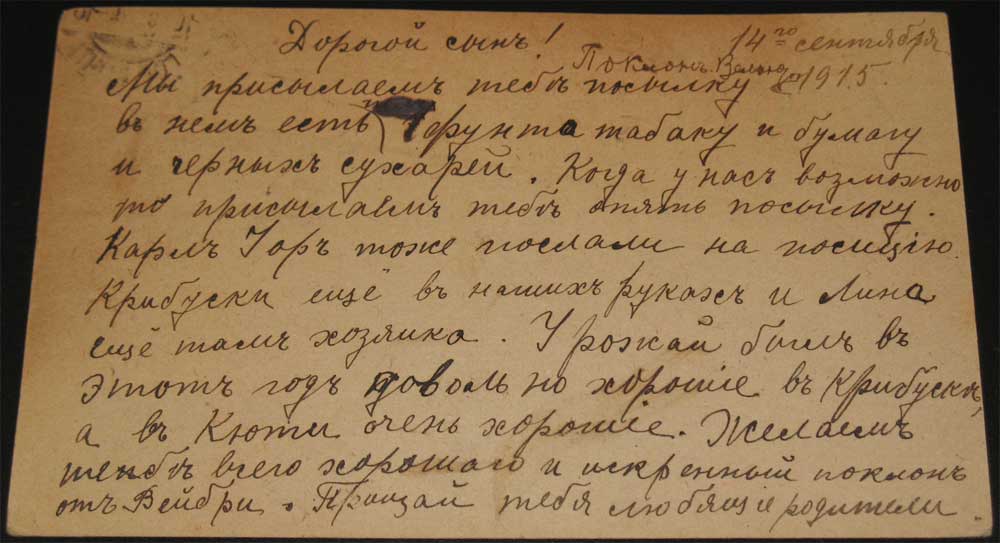 Дорогой сынъ! 14го сентября
Поклонъ 1915.
Мы присылаемъ тебѣ посылку
въ немъ есть 1 фунта табаку и бумагу
и черныхъ сухарей. Когда у насъ возможно
то присылаемъ тебѣ опять посылку.
Карлъ Уоръ тоже послали на позицію.
Крибуски ещё въ нашихъ рукахъ и Лина
ещё тамъ хозяика. Урожай былъ въ
этотъ годъ довольно хорошіе въ Крибускѣ,
а въ Кюти очень хорошіе. Желаемъ
тебѣ всего хорошаго и искренный поклонъ
отъ Вейбри. Прощай тебя любящіе родители.